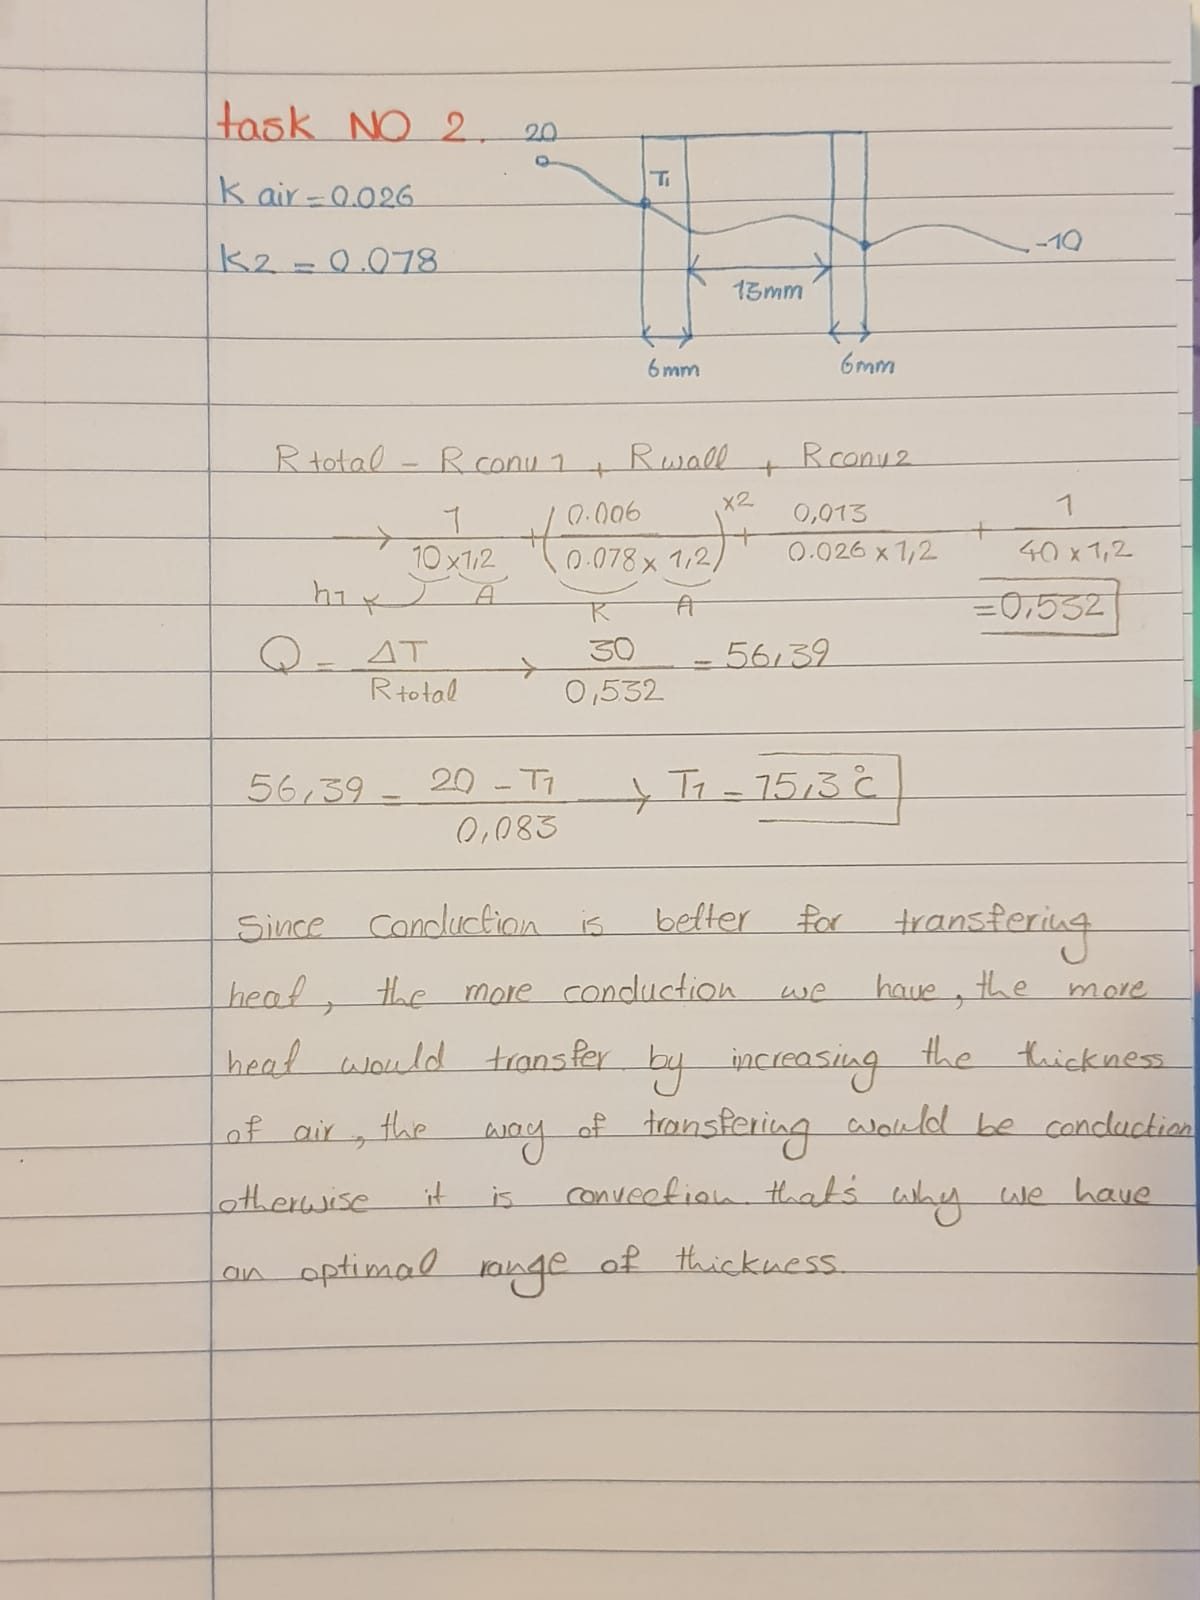 task NO 2.
20
K air = 0.026
T1
K2 = 0.078
-10
13mm
6mm
6mm
R total - R conv 1 + R wall + R conv 2
→ 1 / 10 x 1,2 + ( 0.006 / 0.078 x 1,2 ) x2 + 0,013 / 0.026 x 1,2 + 1 / 40 x 1,2
h1 A K A = 0,532
Q = ΔT / R total → 30 / 0,532 = 56,39
56,39 = 20 - T1 / 0,083 → T1 = 15,3 °C
Since conduction is better for transfering
heat, the more conduction we have, the more
heat would transfer. by increasing the thickness
of air, the way of transfering would be conduction
otherwise it is convection. that's why we have
an optimal range of thickness.